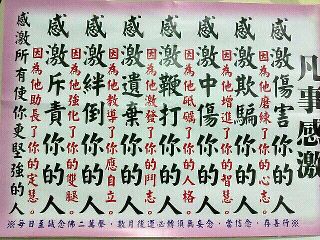 凡事感激
感激傷害你的人
因為他磨練了你的心志。
感激欺騙你的人
因為他增進了你的智慧。
感激中傷你的人
因為他砥礪了你的人格。
感激鞭打你的人
因為他激發了你的鬥志。
感激遺棄你的人
因為他教導了你應自立。
感激絆倒你的人
因為他強化了你的雙腿。
感激斥責你的人
因為他助長了你的定慧。
感激所有使你更堅強的人
※每日至誠念佛二萬聲，數月後運必轉 須無妄念．當信念．存善行※